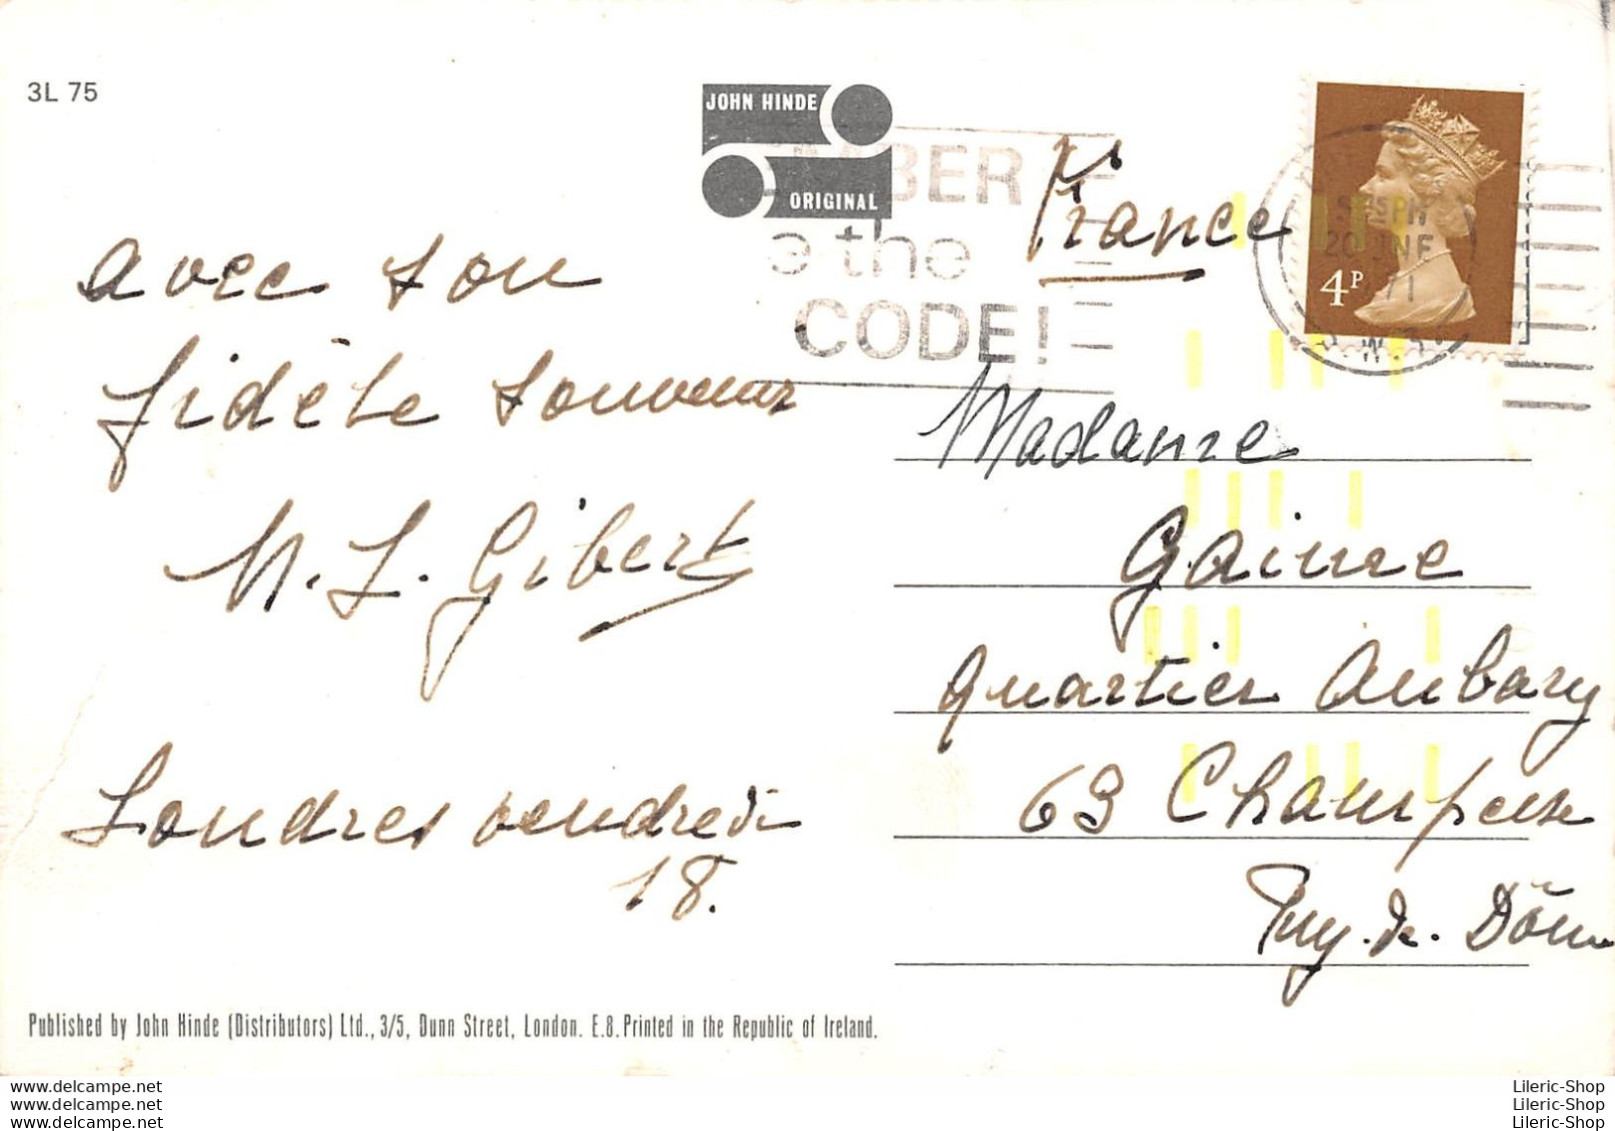 3L 75
JOHN HINDE
ORIGINAL
MBER
e the
CODE!
5 15 PM
20 JNE
71
4P
France
avec son
fidèle souvenir
M. L. Gibert
Londres vendredi
18.
Madame
Gaime
Quartier Aubary
63 Champeix
Puy-de-Dôme
Published by John Hinde (Distributors) Ltd., 3/5, Dunn Street, London. E.8. Printed in the Republic of Ireland.
www.delcampe.net
www.delcampe.net
www.delcampe.net
Lileric-Shop
Lileric-Shop
Lileric-Shop